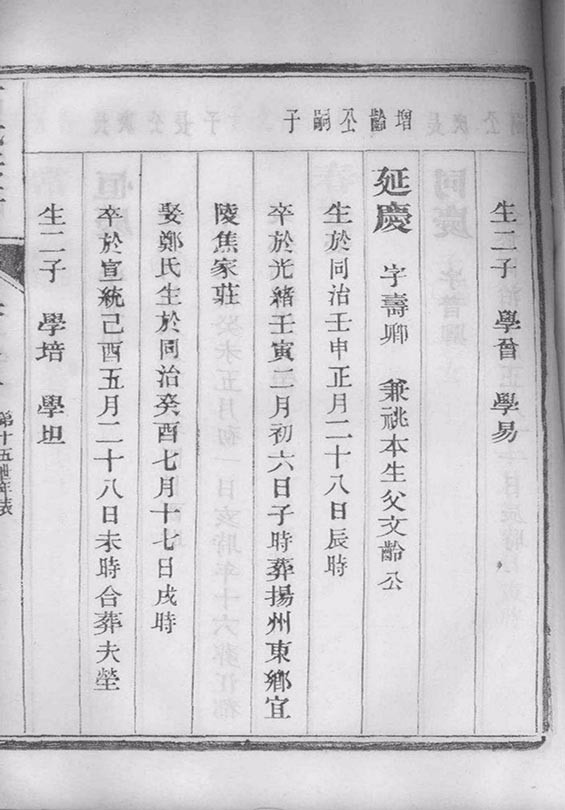 生二子 學曾 學易
增齡公嗣子
延慶 字壽卿 兼祧本生父文齡公
生於同治壬申正月二十八日辰時
卒於光緒壬寅二月初六日子時葬揚州東鄉宜
陵焦家莊
娶鄭氏生於同治癸酉七月十七日戌時
卒於宣統己酉五月二十八日未時合葬夫塋
生二子 學培 學坦
第十五世年表